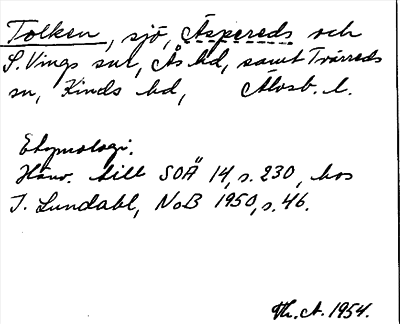 Tolken, sjö, Äspereds och
S. Vings snr, Ås hd, samt Tvärreds
sn, Kinds hd, Älvsb. l.
Etymologi.
Hänv. till SOÄ 14, s. 230, hos
I. Lundahl, NoB 1950, s. 46.
Th. A. 1954.